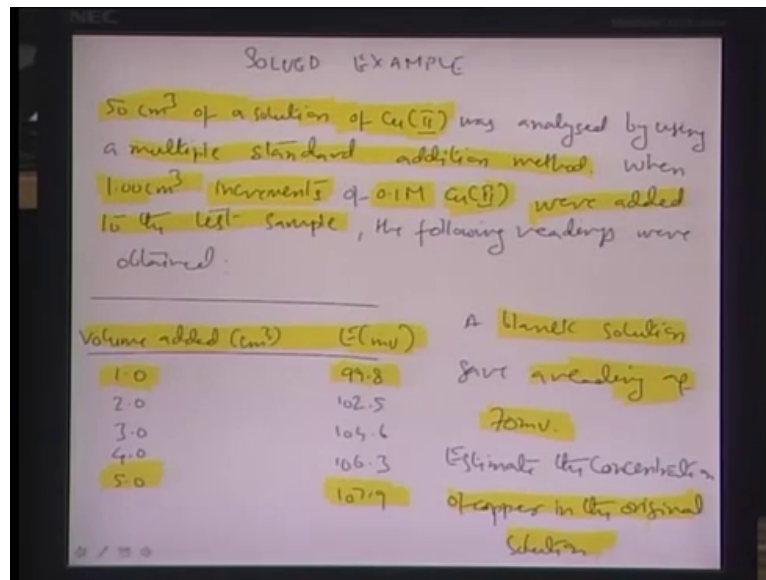 NEC
SOLVED EXAMPLE
50 cm³ of a solution of Cu(II) was analysed by using
a multiple standard addition method. When
1.00 cm³ increments of 0.1M Cu(II) were added
to the test sample, the following readings were
obtained.
Volume added (cm³) E(mv)
1.0 99.8
2.0 102.5
3.0 104.6
4.0 106.3
5.0 107.9
A blank solution
gave a reading of
70mv.
Estimate the concentration
of copper in the original
solution